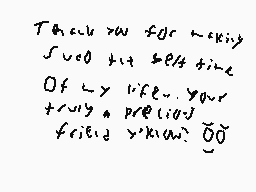 Thank you for making
such the best time
Of my life.. your
truly a precious
friend y'know?